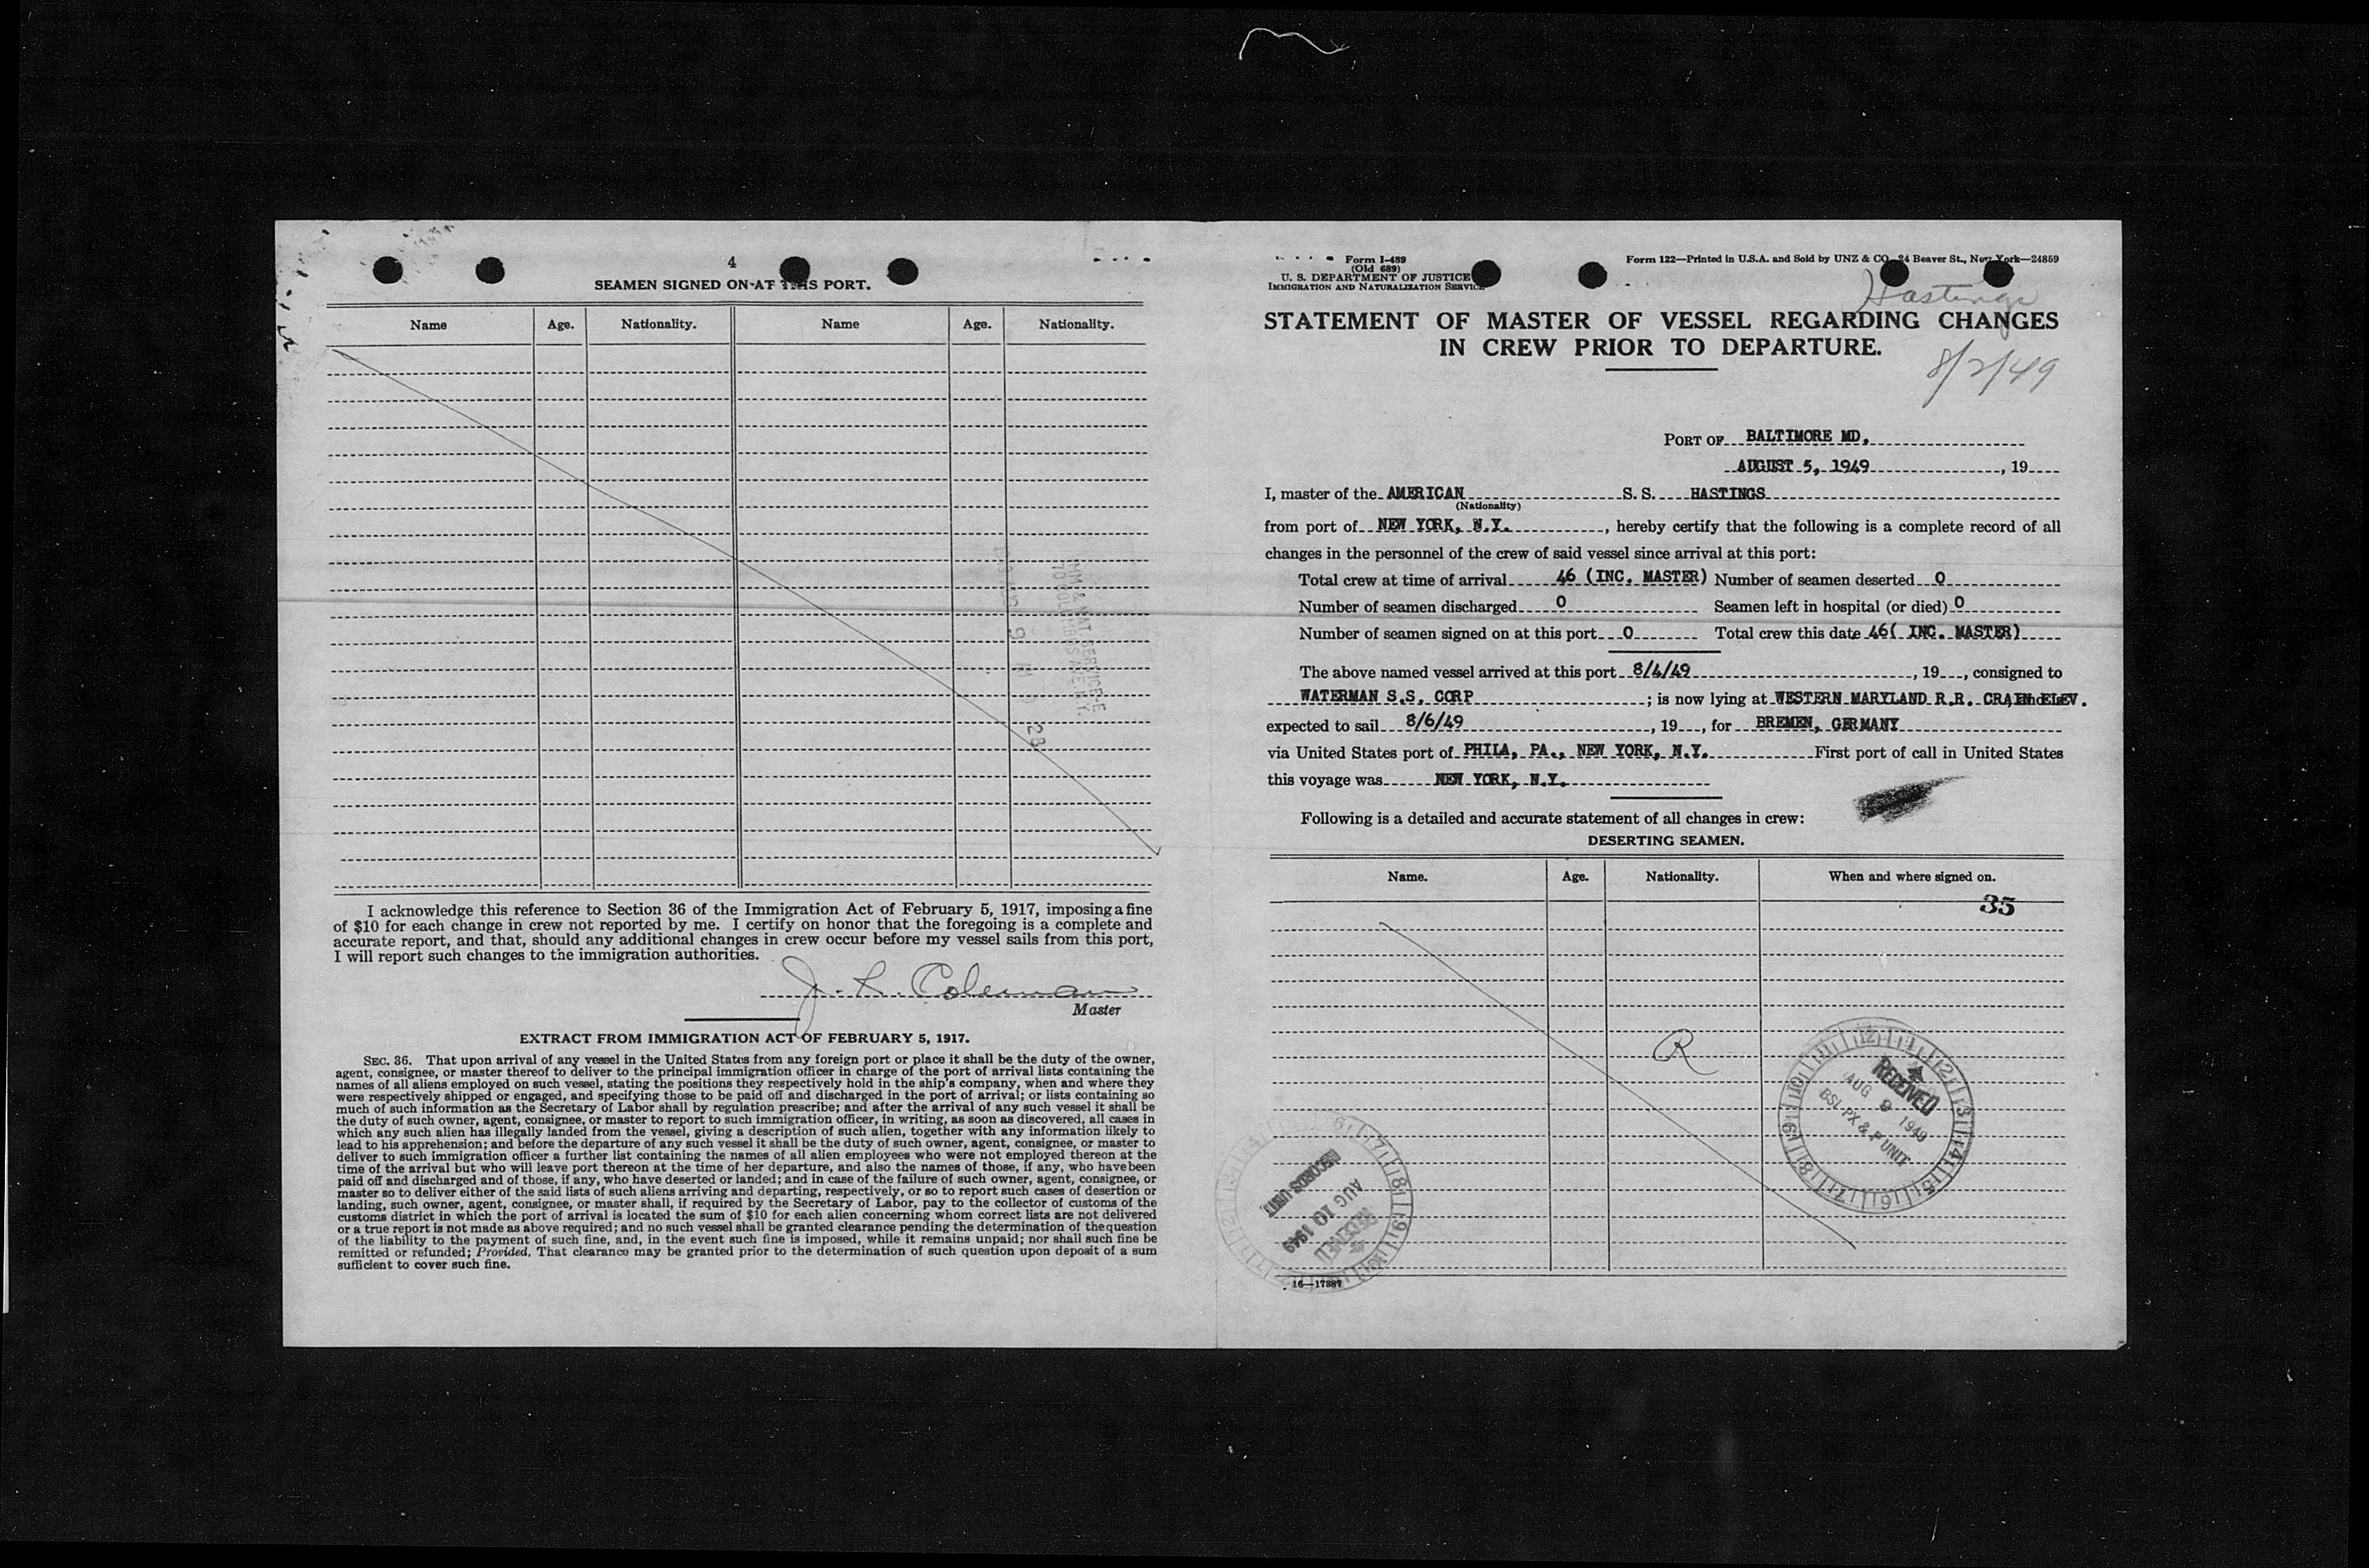 4
SEAMEN SIGNED ON AT THIS PORT.
Name Age. Nationality. Name Age. Nationality.
28
I acknowledge this reference to Section 36 of the Immigration Act of February 5, 1917, imposing a fine
of $10 for each change in crew not reported by me. I certify on honor that the foregoing is a complete and
accurate report, and that, should any additional changes in crew occur before my vessel sails from this port,
I will report such changes to the immigration authorities.
J. L. Coleman
Master
EXTRACT FROM IMMIGRATION ACT OF FEBRUARY 5, 1917.
SEC. 36. That upon arrival of any vessel in the United States from any foreign port or place it shall be the duty of the owner,
agent, consignee, or master thereof to deliver to the principal immigration officer in charge of the port of arrival lists containing the
names of all aliens employed on such vessel, stating the positions they respectively hold in the ship's company, when and where they
were respectively shipped or engaged, and specifying those to be paid off and discharged in the port of arrival; or lists containing so
much of such information as the Secretary of Labor shall by regulation prescribe; and after the arrival of any such vessel it shall be
the duty of such owner, agent, consignee, or master to report to such immigration officer, in writing, as soon as discovered, all cases in
which any such alien has illegally landed from the vessel, giving a description of such alien, together with any information likely to
lead to his apprehension; and before the departure of any such vessel it shall be the duty of such owner, agent, consignee, or master to
deliver to such immigration officer a further list containing the names of all alien employees who were not employed thereon at the
time of the arrival but who will leave port thereon at the time of her departure, and also the names of those, if any, who have been
paid off and discharged and of those, if any, who have deserted or landed; and in case of the failure of such owner, agent, consignee, or
master so to deliver either of the said lists of such aliens arriving and departing, respectively, or so to report such cases of desertion or
landing, such owner, agent, consignee, or master shall, if required by the Secretary of Labor, pay to the collector of customs of the
customs district in which the port of arrival is located the sum of $10 for each alien concerning whom correct lists are not delivered
or a true report is not made as above required; and no such vessel shall be granted clearance pending the determination of the question
of the liability to the payment of such fine, and, in the event such fine is imposed, while it remains unpaid; nor shall such fine be
remitted or refunded; Provided, That clearance may be granted prior to the determination of such question upon deposit of a sum
sufficient to cover such fine.
Form I-489
(Old 689)
U. S. DEPARTMENT OF JUSTICE
IMMIGRATION AND NATURALIZATION SERVICE
Form 122—Printed in U.S.A. and Sold by UNZ & CO. 24 Beaver St., New York—24859
Hastings
STATEMENT OF MASTER OF VESSEL REGARDING CHANGES
IN CREW PRIOR TO DEPARTURE.
8/2/49
PORT OF BALTIMORE MD.
AUGUST 5, 1949, 19
I, master of the AMERICAN S. S. HASTINGS
(Nationality)
from port of NEW YORK, N.Y., hereby certify that the following is a complete record of all
changes in the personnel of the crew of said vessel since arrival at this port:
Total crew at time of arrival 46 (INC. MASTER) Number of seamen deserted 0
Number of seamen discharged 0 Seamen left in hospital (or died) 0
Number of seamen signed on at this port 0 Total crew this date 46( INC. MASTER)
The above named vessel arrived at this port 8/4/49, 19, consigned to
WATERMAN S.S. CORP; is now lying at WESTERN MARYLAND R.R. ELEV.
expected to sail 8/6/49, 19, for BREMEN, GERMANY
via United States port of PHILA, PA., NEW YORK, N.Y. First port of call in United States
this voyage was NEW YORK, N.Y.
Following is a detailed and accurate statement of all changes in crew:
DESERTING SEAMEN.
Name. Age. Nationality. When and where signed on.
35
R
RECEIVED
AUG 9 1949
BSI PX & P UNIT
RECORDS UNIT
AUG 10 1949
RECEIVED
16—17887